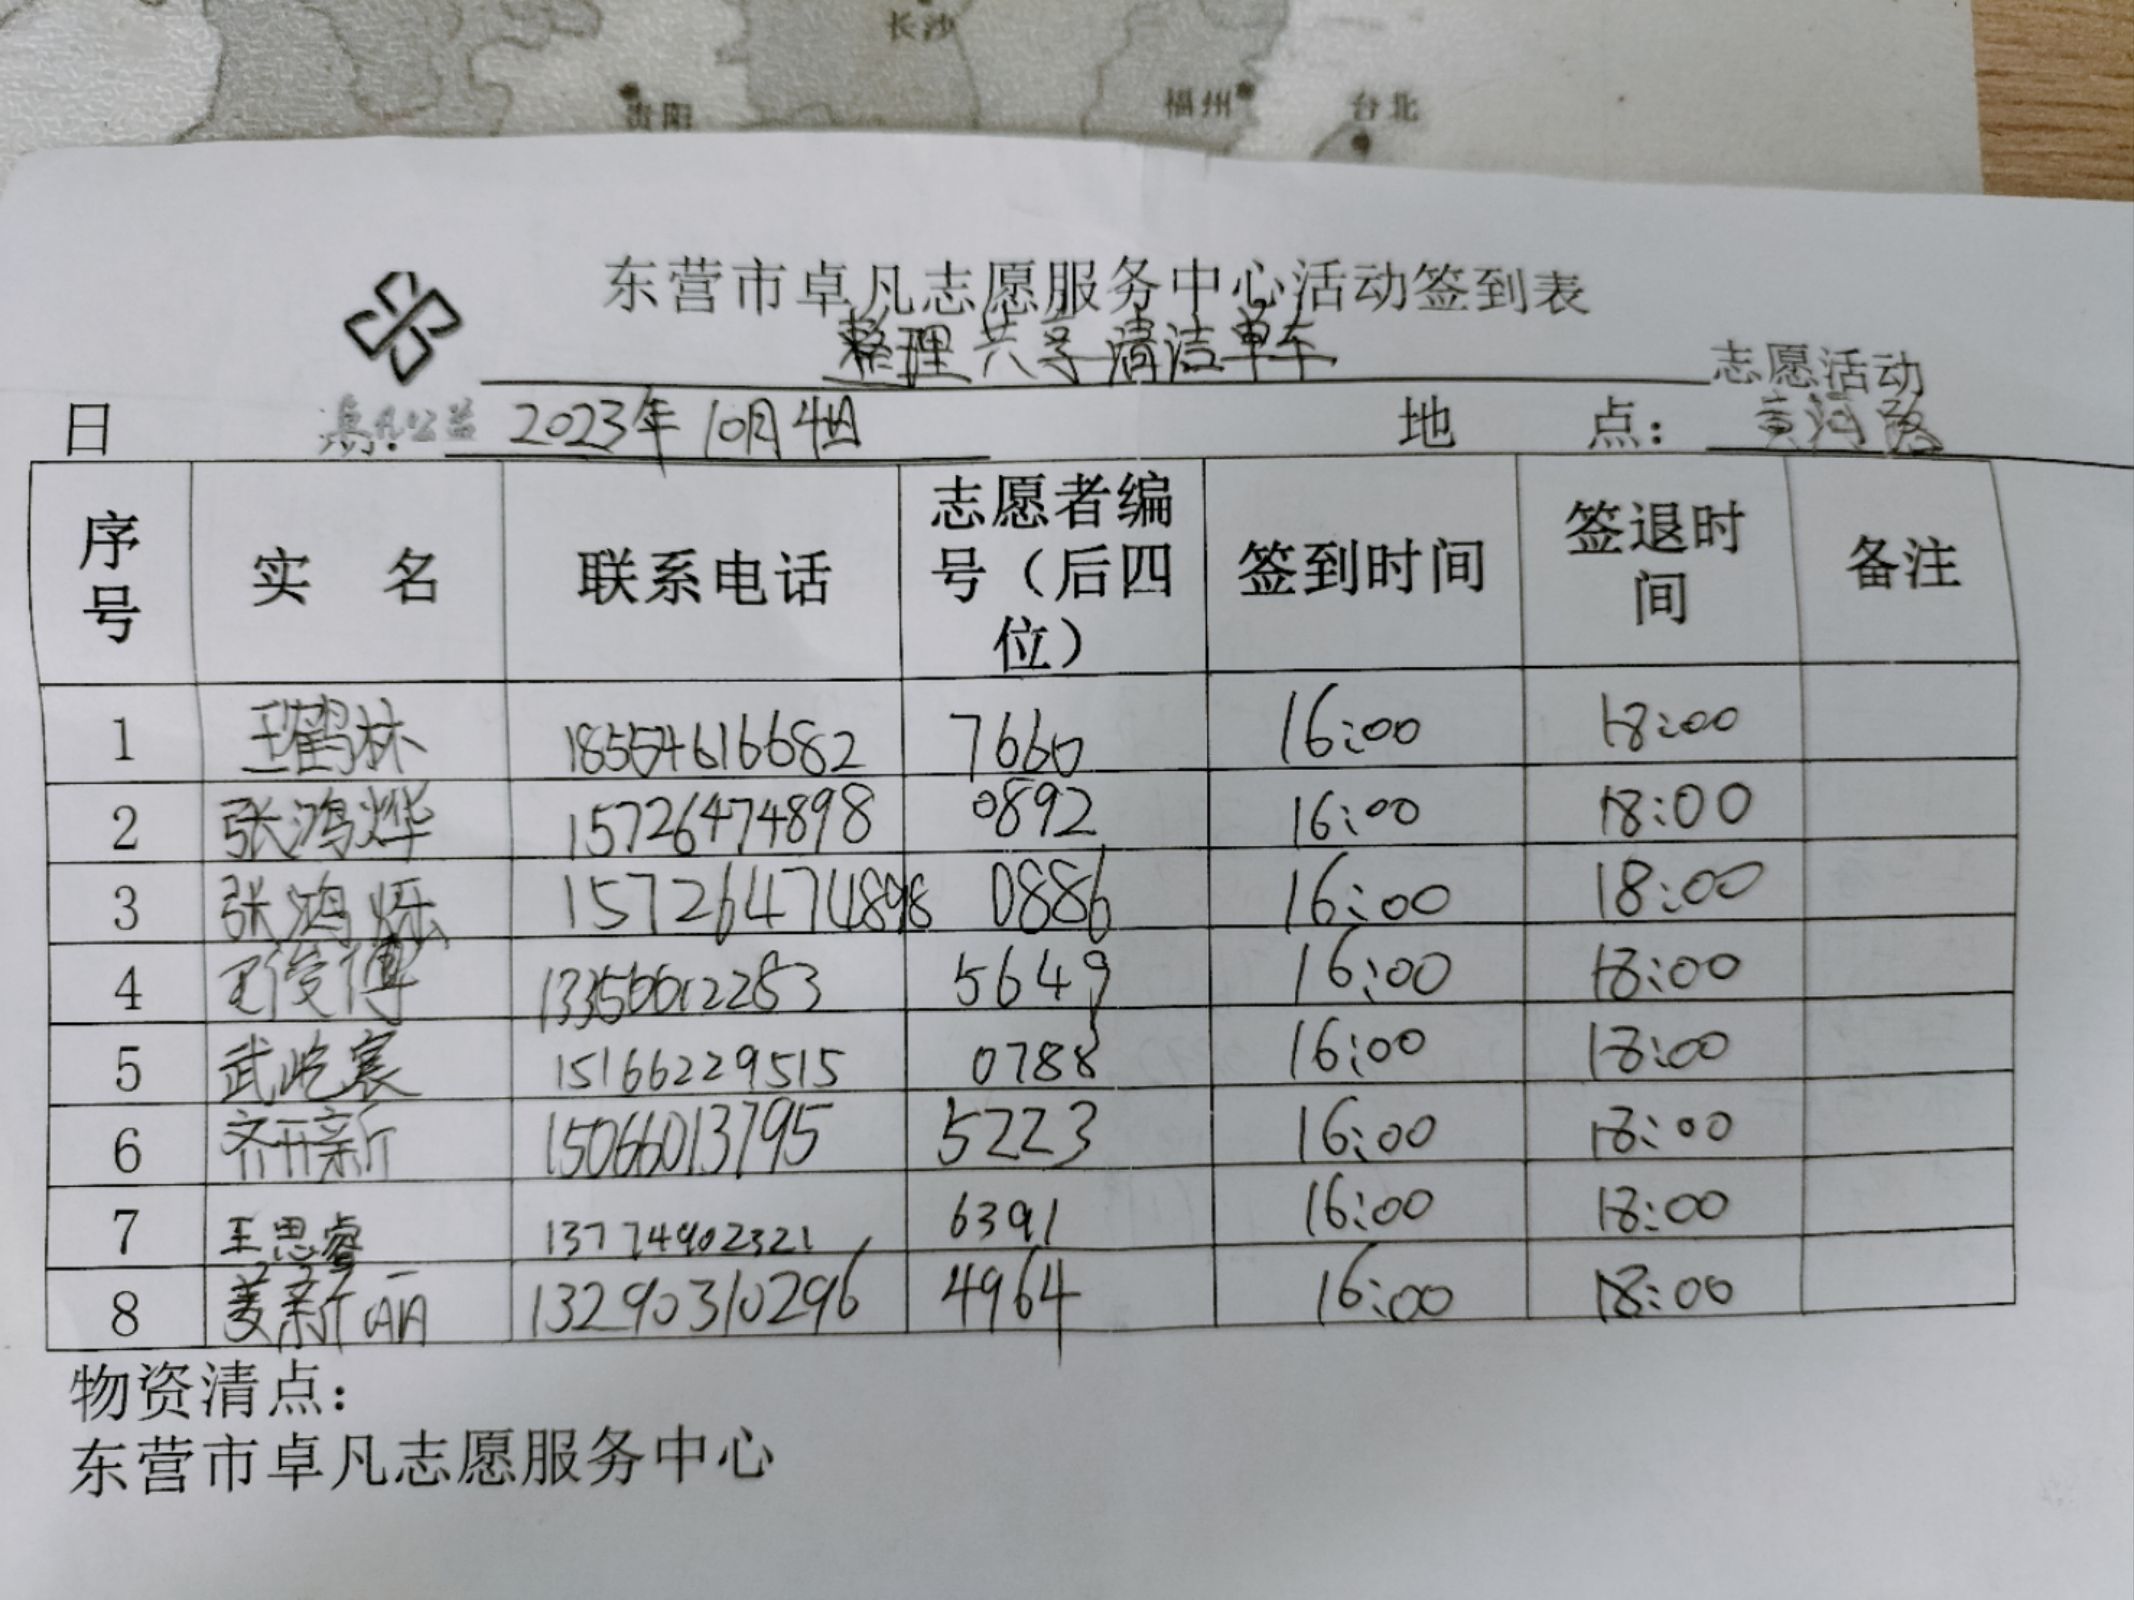 长沙
贵阳
福州
台北
东营市卓凡志愿服务中心活动签到表
整理共享清洁单车 志愿活动
日 期: 2023年10月4日 地 点: 黄河路
卓凡公益
序号 实 名 联系电话 志愿者编号(后四位) 签到时间 签退时间 备注
1 王鹤林 18554616682 7660 16:00 18:00
2 张鸿烨 15726474898 0892 16:00 18:00
3 张鸿烁 15726474898 0886 16:00 18:00
4 王俊博 5649 16:00 18:00
5 武屹寰 15166229515 0788 16:00 18:00
6 齐开新 15066013795 5223 16:00 18:00
7 王思睿 13774902321 6391 16:00 18:00
8 姜新雨 13290310296 4964 16:00 18:00
物资清点:
东营市卓凡志愿服务中心